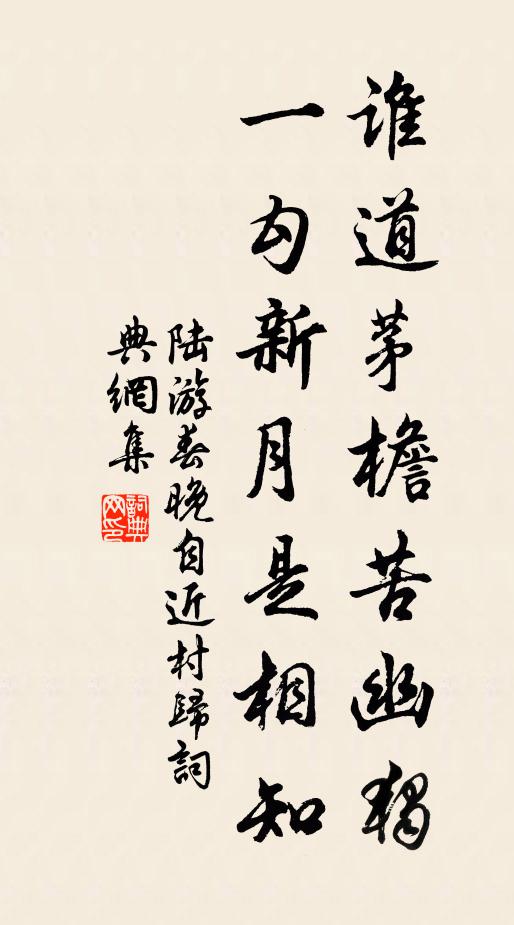 谁道茅檐苦幽独
一勾新月是相知
陆游春晚自近村歸詞
典網集
詞典网印